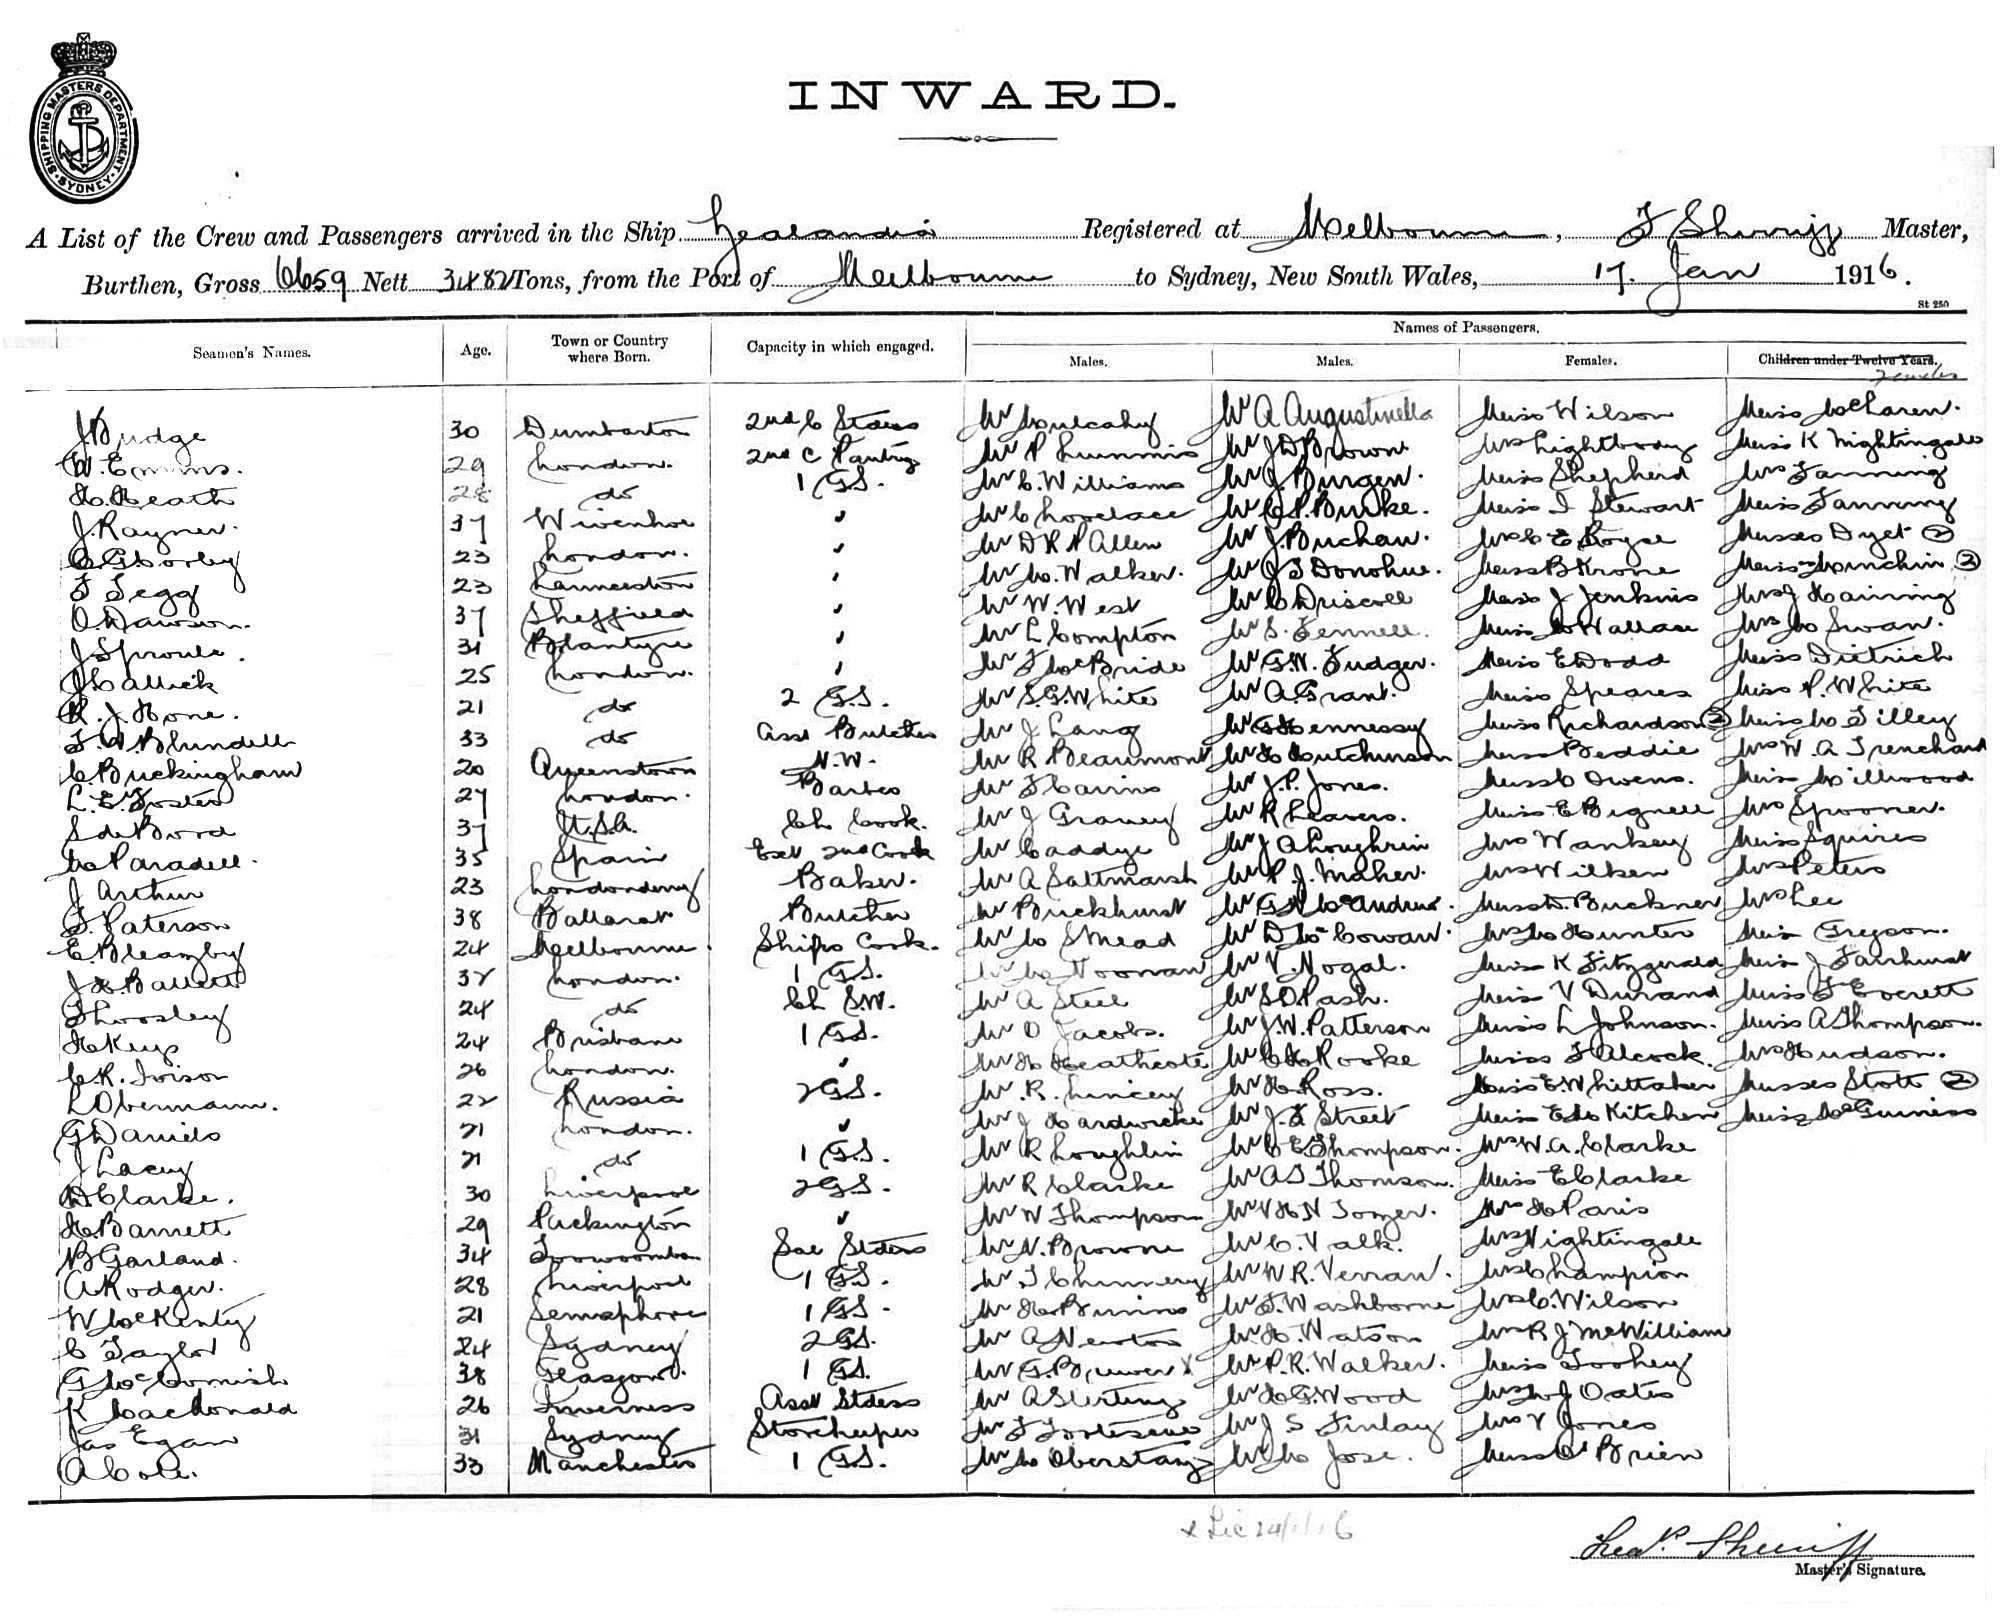 SHIPPING MASTERS DEPARTMENT. SYDNEY.
INWARD.
A List of the Crew and Passengers arrived in the Ship Zealandia Registered at Melbourne, F Sherriff Master,
Burthen, Gross 6659 Nett 3482 Tons, from the Port of Melbourne to Sydney, New South Wales, 17. Jan 1916.
St 250
Seamen's Names. Age. Town or Country where Born. Capacity in which engaged. Names of Passengers.
Males. Males. Females. Children under Twelve Years.
Females
J Budge 30 Dumbarton 2nd C Stdess Mr Mulcahy Mr A Augustinella Miss Wilson Miss McLaren.
W. Emms. 29 London. 2nd C Pantry Mr P Lummis Mr J D Brown Mrs Lightbody Miss K Nightingale
H. Heath 28 do 1 G.S. Mr C. Williams Mr J. Burgen. Miss Shepherd Mrs Fanning
J. Rayner. 37 Wivenhoe " Mr C Lovelace Mr C P. Burke. Miss I Stewart Miss Fanning
C G Corley 23 London. " Mr D R P Allen Mr J. Buchan. Mrs C E Royse Misses Dyet (2)
F Tegg 23 Launceston " Mr M. Walker. Mr J F Donohue. Miss B Krone Misses Minchin (2)
O. Dawson. 37 Sheffield " Mr W. West Mr C Driscoll Miss J Jenkins Mrs J Haining
J Sproule. 31 Blantyre " Mr L Compton Mr S. Fennell. Miss M Wallace Mrs M Swan.
J Callick 25 London. " Mr F McBride Mr G.W. Fudger. Miss E Dodd Miss Dietrich
R. J. Hone. 21 do 2 G.S. Mr S.G. White Mr A. Grant. Miss Speares Miss P. White
F. W. Blundell 33 do Asst Butcher Mr J Lang Mr G Hennessy Misses Richardson (2) Miss M Tilley
C. Buckingham 20 Queenstown N.W. Mr R Beaumont Mr H Hutchinson Miss Beddie Mrs W A Trenchard
L. E. Foster 27 London. Barber Mr F Cairns Mr J. P. Jones. Miss C Owens. Miss Millwood
S de Bord 37 U.S.A. Ch Cook. Mr J Graney Mr R Leavers. Miss E Bignell Mrs Spooner.
M Paradell. 35 Spain Ext 2nd Cook Mr Caddye Mr J A Loughrin Mrs Wankey Miss Squires
J Arthur 23 Londonderry Baker. Mr A Saltmarsh Mr P. J. Maher. Mrs Wilken Mrs Peters
T. Paterson 38 Ballarat Butcher Mr Buckhurst Mr G N McAndrew. Miss D. Buckner Mrs Lee
E. Bleazby 24 Melbourne. Ships Cook. Mr M S Mead Mr D McCowan. Mrs M Hunter Miss Gregson.
J H. Ballett 32 London. 1 G.S. Mr M Noonan Mr V. Nogal. Miss K Fitzgerald Miss J Fairhurst
T Loosley 24 do Ch S.W. Mr A Steel Mr S D Pash. Miss V Durand Miss F Everett
H Keys 24 Brisbane 1 GS. Mr O Jacobs. Mr J.W. Patterson Miss L Johnson. Miss A Thompson.
C. R. Ivison 26 London. " Mr H Heathcote Mr C H Rooke Miss F Alcock. Mrs Hudson.
L Obermann. 22 Russia 2 G.S. Mr. R. Lincey Mr H Ross. Miss E. Whittaker Misses Stott (2)
G Daniels 21 London. " Mr J Hardwicke Mr J. F Street Miss E M Kitchen Miss McGuiness
J Lacey 21 do 1 G.S. Mr R Loughlin Mr C E Thompson. Mrs W. A. Clarke
D Clarke. 30 Liverpool 2 G.S. Mr R Clarke Mr A J Thomson. Miss E Clarke
H. Barnett 29 Packington " Mr W Thompson Mr V H N Tozer. Mrs H Paris
B Garland. 34 Toowoomba Sal Stdess Mr N. Browne Mr C. Valk. Mrs Nightingale
A Rodger. 28 Liverpool 1 G.S. Mr T Chinnery Mr W R. Verran. Mrs Champion
W McKenty 21 Semaphore 1 G.S. Mr H Binns Mr F. Washborne Mrs C. Wilson
C Taylor 24 Sydney 2 GS. Mr A Newton Mr H. Watson Mrs R J McWilliam
G McCormish 38 Glasgow. 1 GS. Mr G. Brewer X Mr P. R. Walker. Miss Toohey
K MacDonald 26 Inverness Asst Stdess Mr A Sterting Mr H G. Wood Mrs M J Oates
Jas Egan 31 Sydney Storekeeper Mr F Fortescue Mr J S Finlay Mrs V Jones
A Cole. 33 Manchester 1 G.S. Mr M Oberstang Mr M Jose. Miss O'Brien
Fredk Sherriff
Master's Signature.